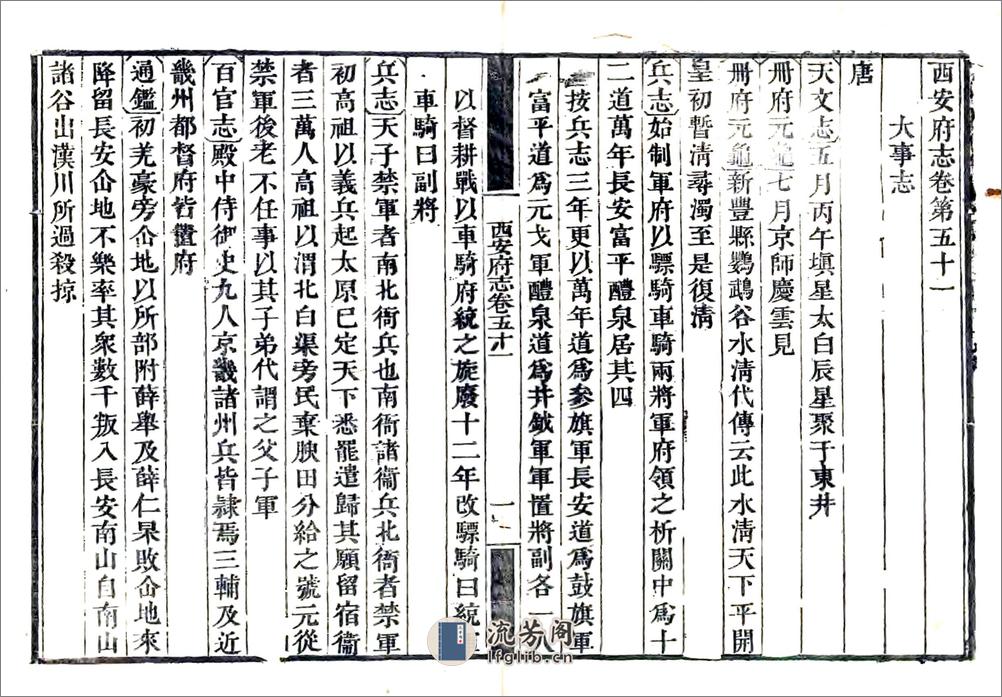 西安府志卷第五十一
大事志
唐
天文志五月丙午塡星太白辰星聚于東井
冊府元龜七月京師慶雲見
冊府元龜新豐縣鸚鵡谷水淸代傳云此水淸天下平開
皇初暫淸尋濁至是復淸
兵志始制軍府以驃騎車騎兩將軍府領之析關中爲十
二道萬年長安富平醴泉居其四
按兵志三年更以萬年道爲參旗軍長安道爲鼓旗軍
富平道爲元戈軍醴泉道爲井鉞軍軍置將副各一人
以督耕戰以車騎府統之旋廢十二年改驃騎曰統軍
車騎曰副將
兵志天子禁軍者南北衙兵也南衙諸衞兵北衙者禁軍
初高祖以義兵起太原已定天下悉罷遣歸其願留宿衞
者三萬人高祖以渭北白渠旁民棄腴田分給之號元從
禁軍後老不任事以其子弟代謂之父子軍
百官志殿中侍御史九人京畿諸州兵皆隷焉三輔及近
畿州都督府皆置府
通鑑初羌豪旁仚地以所部附薛舉及薛仁杲敗仚地來
降留長安仚地不樂率其衆數千叛入長安南山自南山
諸谷出漢川所過殺掠
西安府志卷五十一
一
流芳阁
lfglib.cn